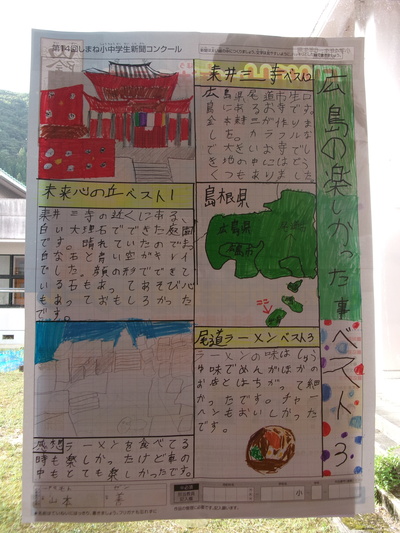 第14回しまね小中学生新聞コンクール
広島の楽しかった事
ベスト3
耒井三寺ベスト2
広島県尾道市生口
島にあるお寺です。
金本耕三が作りま
した。カラフルな
大きいお寺でし
た。地の中にはどう
くつもありました
未来心の丘ベスト1
耒井三寺の近くにある、
白い大理石でできた庭園
です。晴れていたのでま
白な石と青い空がキレイ
でした。顔の形でできて
いる石もあってあそび心
もあっておもしろかった
です。
島根県
広島県
尾道ラーメンベスト3
ラーメンの味はしょう
ゆ味でめんがほかの
お店とはちがって細
かったです。チャー
ハンもおいしかった
です。
感想ラーメンを食べてる
時も楽しかったけど車の
中もとても楽しかったです。
山本
小